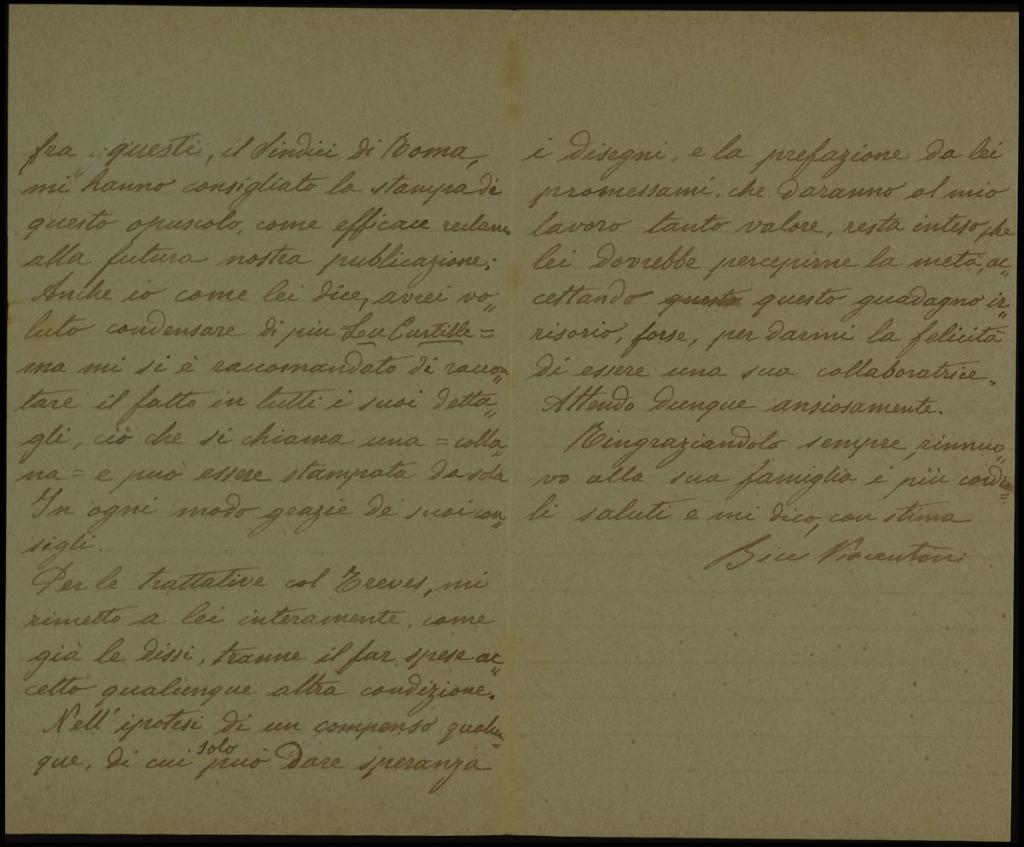 fra questi, il Sindici di Roma,
mi hanno consigliato la stampa di
questo opuscolo, come efficace reclam
alla futura nostra publicazione;
Anche io come lei dice, avrei vo„
luto condensare di più Lou Curtille =
ma mi si è raccomandato di raccon„
tare il fatto in tutti i suoi detta„
gli, ciò che si chiama una = colla„
na = e può essere stampata da sola
In ogni modo grazie de suoi con„
sigli.
Per le trattative col Treves, mi
rimetto a lei interamente, come
già le dissi, tranne il far spese ac„
cetto qualunque altra condizione.
Nell' ipotesi di un compenso qualun„
que, di cui solo può dare speranza
i disegni, e la prefazione da lei
promessami, che daranno al mio
lavoro tanto valore, resta inteso che
lei dovrebbe percepirne la metà, ac„
cettando questo questo guadagno ir„
risorio, forse, per darmi la felicità
di essere una sua collaboratrice.
Attendo dunque ansiosamente.
Ringraziandolo sempre rinnuo„
vo alla sua famiglia i più cordia=
li saluti e mi dico, con stima
Bice Vincentini